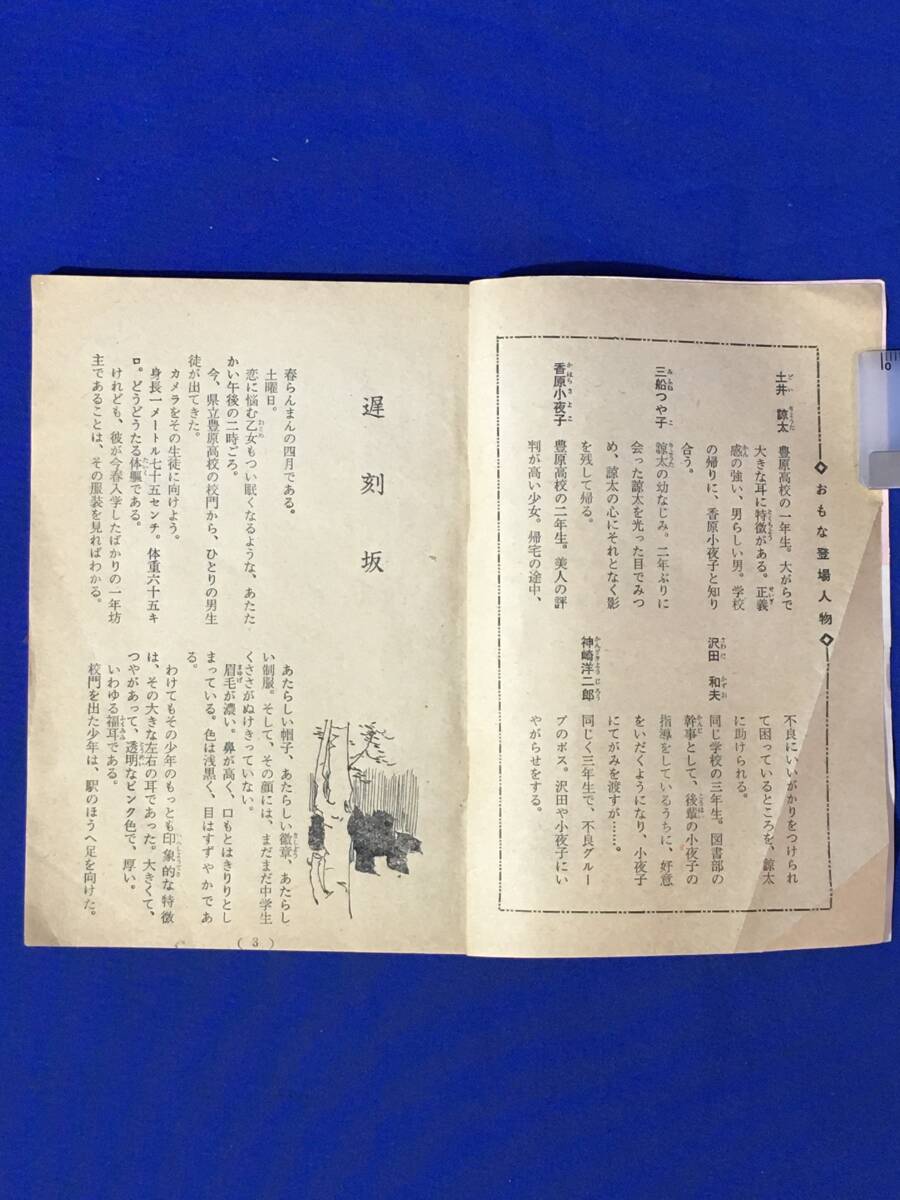 おもな登場人物
土井　諒太
豊原高校の一年生。大がらで
大きな耳に特徴がある。正義
感の強い、男らしい男。学校
の帰りに、香原小夜子と知り
合う。
三船つや子
諒太の幼なじみ。二年ぶりに
会った諒太を光った目でみつ
め、諒太の心にそれとなく影
を残して帰る。
香原小夜子
豊原高校の二年生。美人の評
判が高い少女。帰宅の途中、
不良にいいがかりをつけられ
て困っているところを、諒太
に助けられる。
沢田　和夫
同じ学校の三年生。図書部の
幹事として、後輩の小夜子の
指導をしているうちに、好意
をいだくようになり、小夜子
にてがみを渡すが……。
神崎洋二郎
同じく三年生で、不良グルー
プのボス。沢田や小夜子にい
やがらせをする。
遅刻坂
春らんまんの四月である。
土曜日。
恋に悩む乙女もつい眠くなるような、あたた
かい午後の二時ごろ。
今、県立豊原高校の校門から、ひとりの男生
徒が出てきた。
カメラをその生徒に向けよう。
身長一メートル七十五センチ。体重六十五キ
ロ。どうどうたる体軀である。
けれども、彼が今春入学したばかりの一年坊
主であることは、その服装を見ればわかる。
あたらしい帽子、あたらしい徽章、あたらし
い制服。そして、その顔には、まだまだ中学生
くささがぬけきっていない。
眉毛が濃い。鼻が高く、口もとはきりりとし
まっている。色は浅黒く、目はすずやかであ
る。
わけてもその少年のもっとも印象的な特徴
は、その大きな左右の耳であった。大きくて、
つやがあって、透明なピンク色で、厚い。
いわゆる福耳である。
校門を出た少年は、駅のほうへ足を向けた。
( 3 )